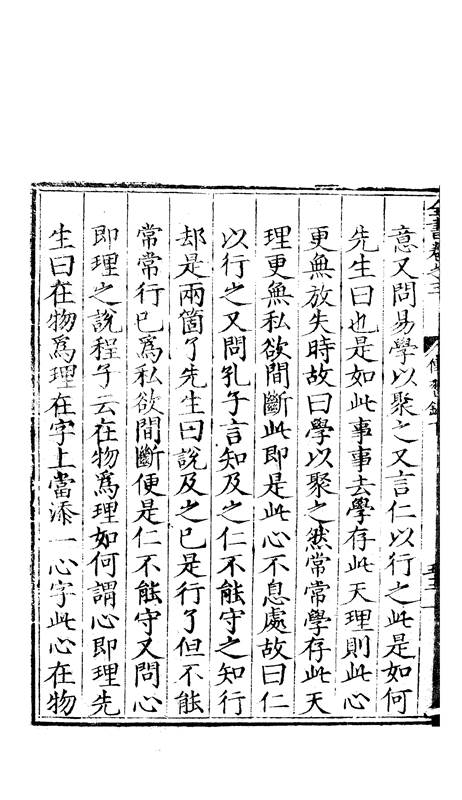 全書卷之三
傳習錄下
意又問易學以聚之又言仁以行之此是如何
先生曰也是如此事事去學存此天理則此心
更無放失時故曰學以聚之然常常學存此天
理更無私欲間斷此即是此心不息處故曰仁
以行之又問孔子言知及之仁不能守之知行
却是兩箇了先生曰說及之已是行了但不能
常常行已爲私欲間斷便是仁不能守又問心
即理之說程子云在物爲理如何謂心即理先
生曰在物爲理在字上當添一心字此心在物